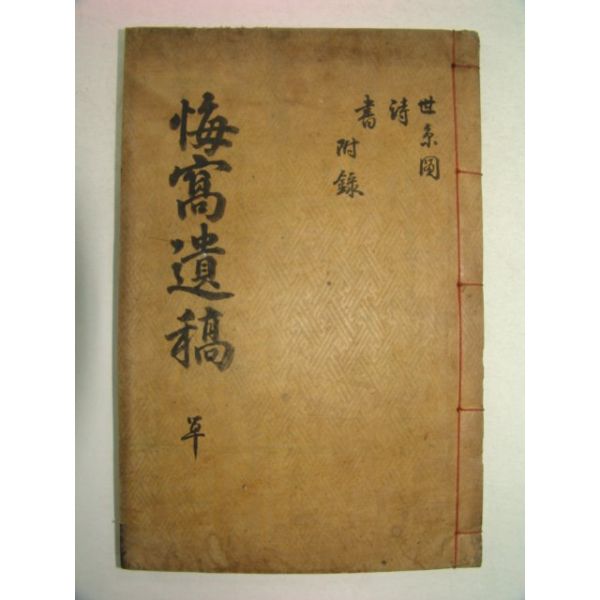 世系圖
詩
書附錄
悔窩遺稿